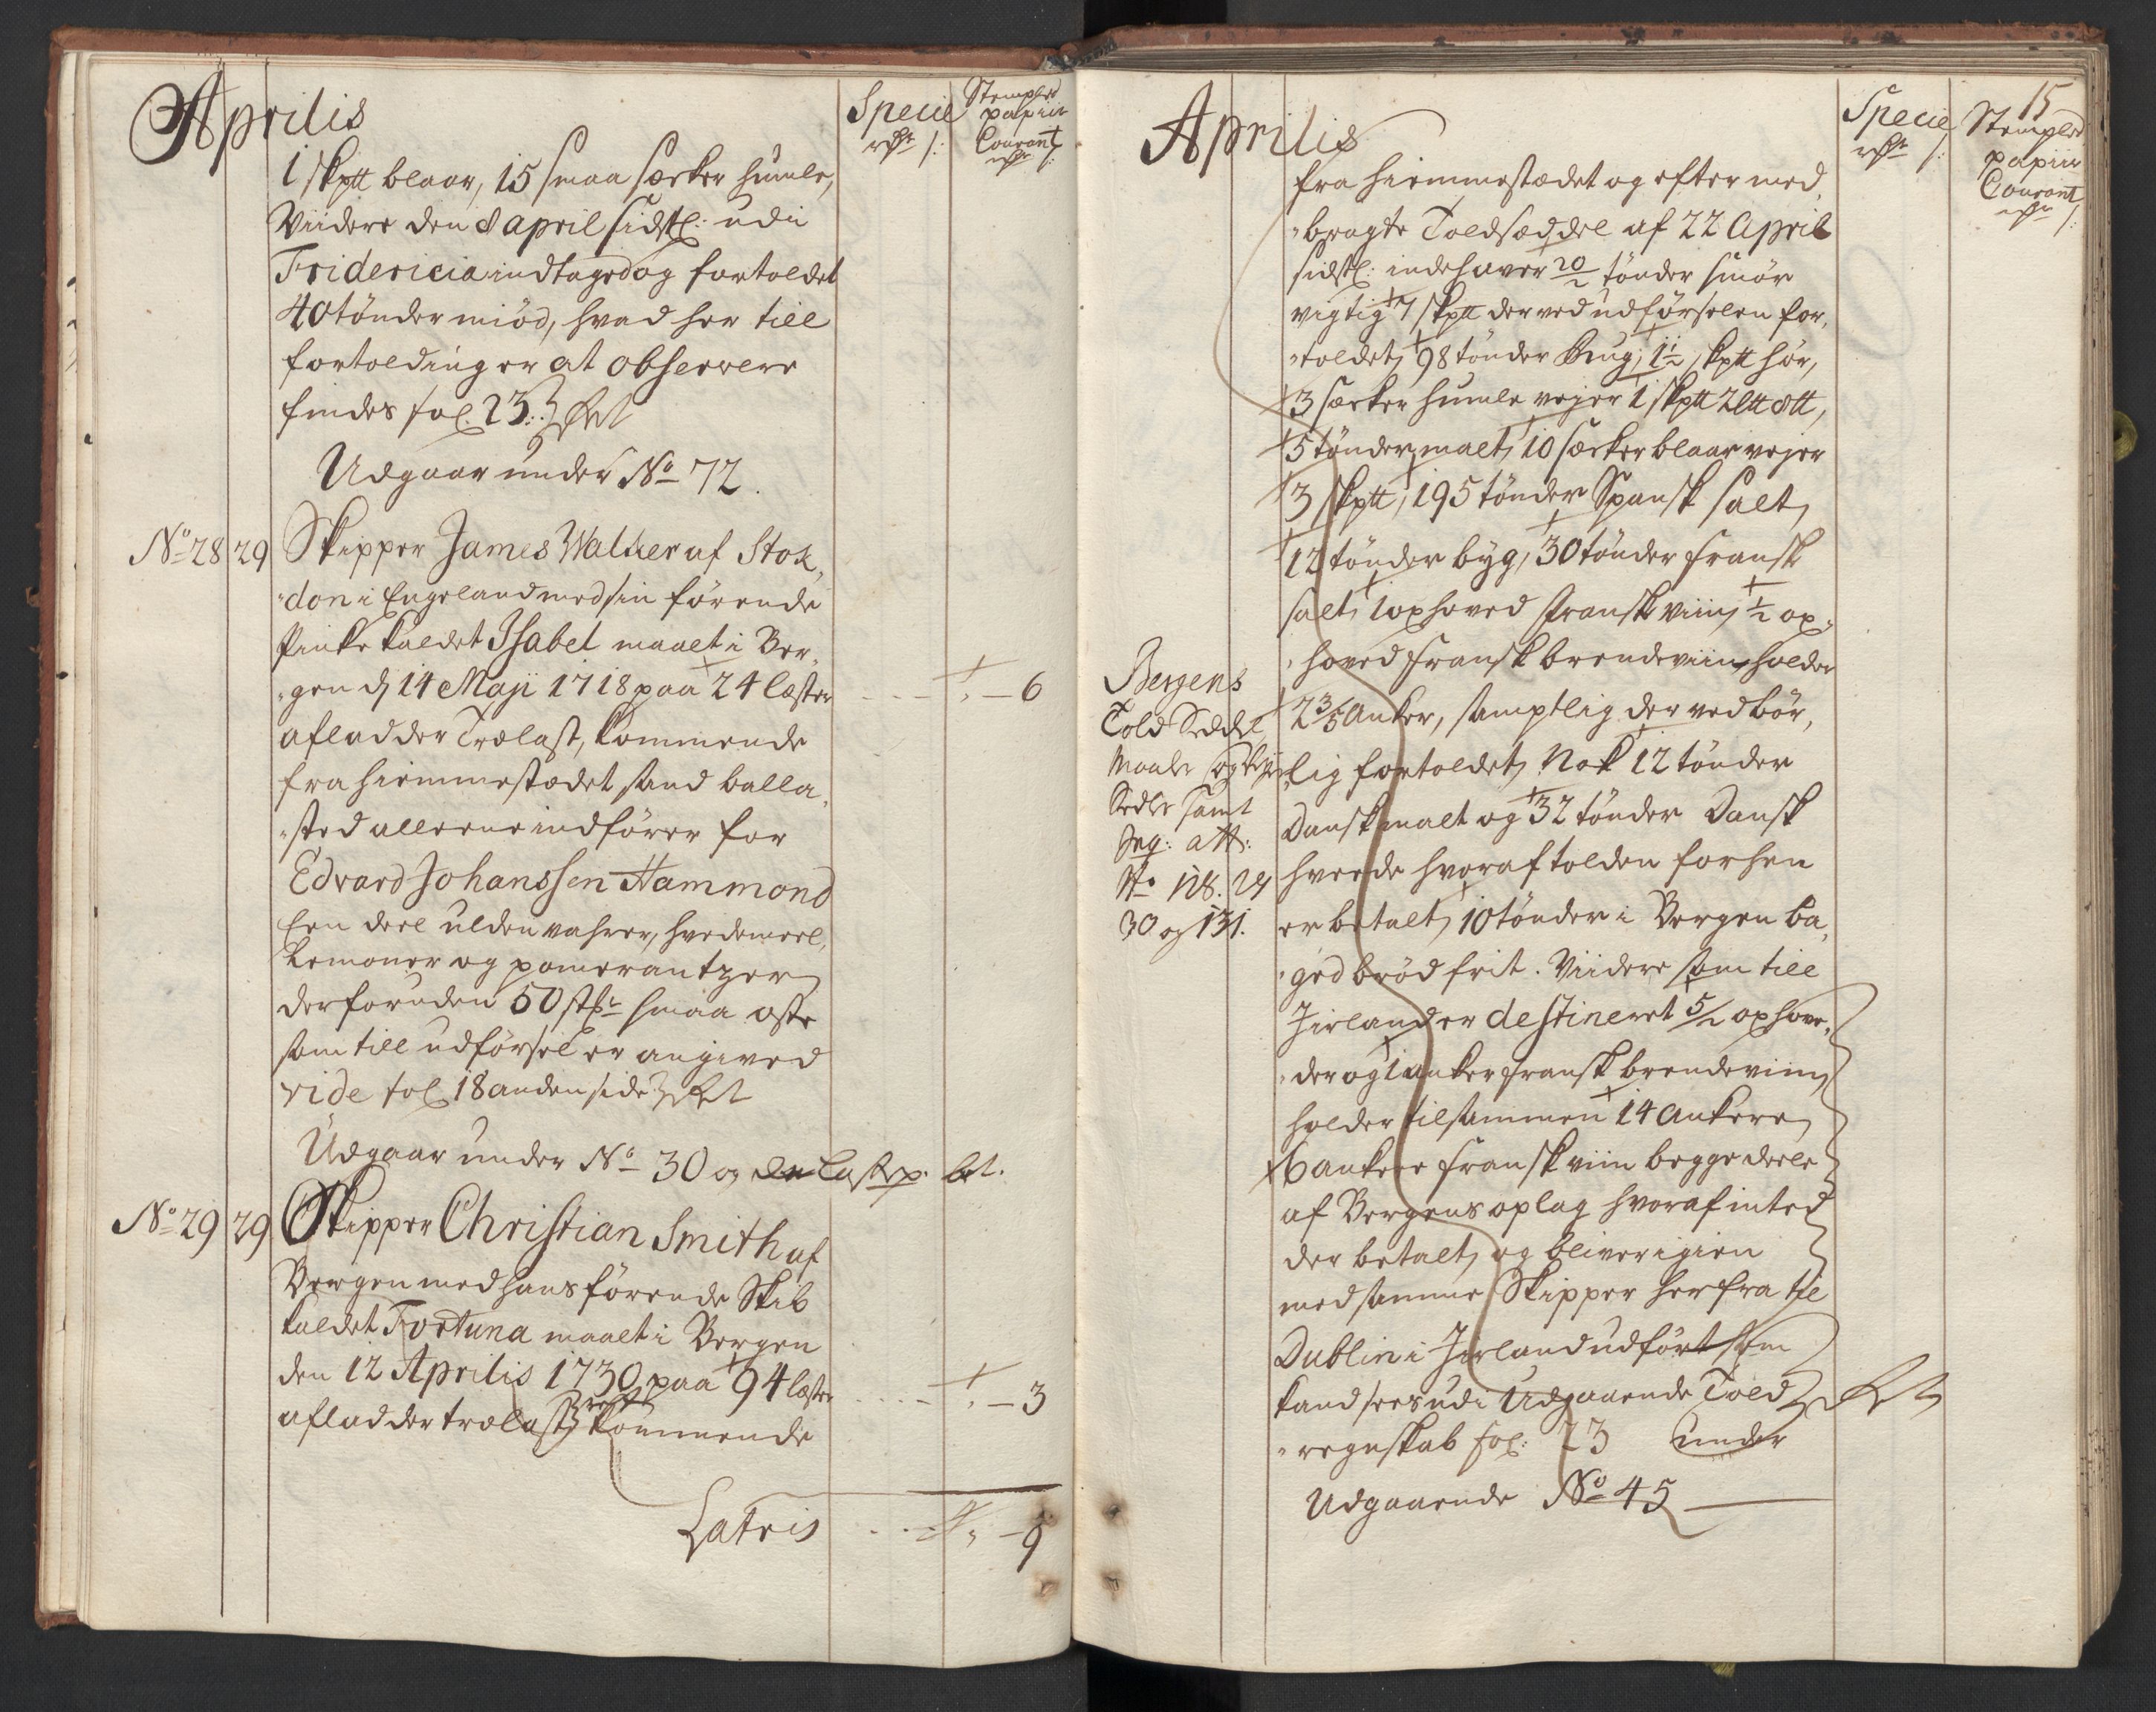 Aprilis
Specie
rdr /:
Stempled
papiir
Courant
rdr /:
1 skptt blaar, 15 smaa sæcker humle,
Viidere den 8 april sidstl: udi
Fridericia indtaged og fortoldet
40 tønder miød, hvad her till
fortolding er at observere
findes fol. 23.
Udgaar under No 72.
No 28 29 Skipper James Walker af Stok,
"don i Engeland med sin førende
Pinke kaldet Isabel maalt i Ber,
"gen d 14 Maji 1718 paa 24 læster - - - " - 6
aflad der Trælast, kommende
fra hiemmestædet sand balla,
"sted alleene indfører for
Edvard Johanssen Hammond
Een deel ulden vahrer, hvedemeel,
Lemoner og pomerantzer
der foruden 50 stkr smaa oste
som till udførsel er angived
vide fol 18 anden side
Udgaar under No 30 og lastep. bet.
No 29 29 Skipper Christian Smith af
Bergen med hans førende Skib
kaldet Fortuna maalt i Bergen
den 12 Aprilis 1730 paa 94 læster - - - " - 3
aflad der trælast kommende
Latris - - - " - 9
15
Aprilis
Specie
rdr /:
Stempled
papiir
Courant
rdr /:
fra hiemmestædet og efter med,
"bragte Toldsæddel af 22 April
sidstl: indehaver 20/2 tønder smør
vigtig 7 skptt der ved udførselen for,
"toldet, 98 tønder Rug, 1 1/2 skptt hør,
3 sæcker humle vejer 1 skptt 2 ltt 8 tt,
5 tønder malt, 10 sæcker blaar vejer
3 skptt, 195 tønder Spansk salt,
12 tønder byg, 30 tønder fransk
salt, 1 oxhoved fransk viin, 1/2 ox,
"hoved fransk brendeviin holder
2 3/5 Anker, samptlig der ved bør,
"lig fortoldet, Nok 12 tønder
Dansk malt og 32 tønder Dansk
hveede hvoraf tolden forhen
er betalt, 10 tønder i Bergen ba,
"ged brød frit. Viidere som till
Jirland er destineret 5/2 oxhove,
"der og 1 anker fransk brendeviin
holder tilsammen 14 Ankere,
6 ankere fransk viin begge deele
af Bergens oplag hvoraf inted
der betalt, og bliver igien
med samme Skipper herfra til
Dublin i Jirland udført som
kand sees udi Udgaaende Told
"regnskab fol: 23 under
Udgaaende No 45
Bergens
Told Seddel
Maale og
Sedler samt
No 128. 29
30 og 131.